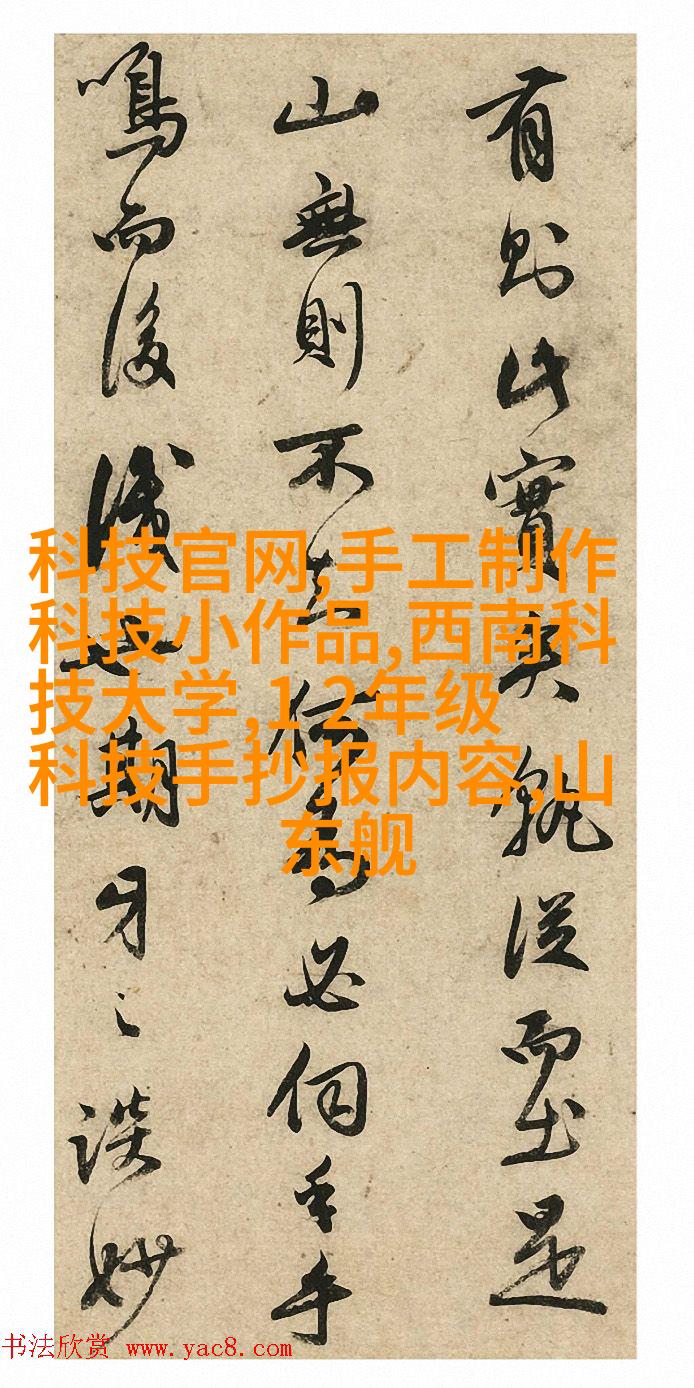 有則此實孰從而是
山無則不何為必伺手手
鳴而後識也期牙談妙
科技官网,手工制作
科技小作品,西南科
技大学,1 2年级
科技手抄报内容,山
东舰
书法欣赏 www.yac8.com